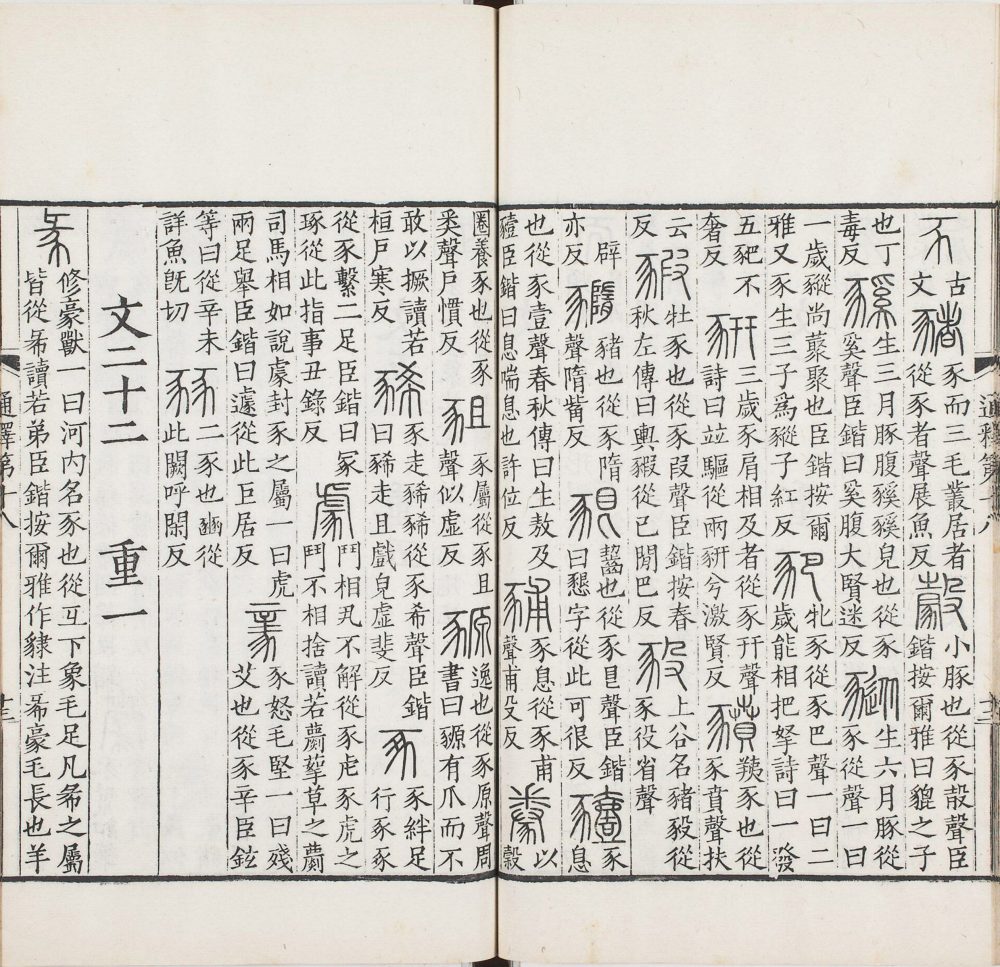 古文豬豕而三毛叢居者從豕者聲展魚反豰小豚也從豕㱿聲臣鍇按爾雅曰貔之子
也丁毒反豯生三月豚腹豯豯皃也從豕奚聲臣鍇曰奚腹大賢迷反豵生六月豚從豕從聲一曰
一歲豵尚藂聚也臣鍇按爾雅又豕生三子爲豵子紅反豝牝豕從豕巴聲一曰二歲能相把拏詩曰一發
五豝不奢反豣三歲豕肩相及者從豕幵聲詩曰竝驅從兩豜兮激賢反豶羠豕也從豕賁聲扶
云反豭牡豕也從豕叚聲臣鍇按春秋左傳曰輿豭從己閒巴反豛上谷名豬豛從豕役省聲
辟亦反䝐豬也從豕隋聲隋觜反豤齧也從豕㫐聲臣鍇曰懇字從此可很反豷豕息
也從豕壹聲春秋傳曰生敖及豷臣鍇曰息喘息也許位反豧豕息從豕甫聲甫殳反豢以穀
通釋第十八
十二
圈養豕也從豕𠔉聲戶慣反豠豕屬從豕且聲似虛反豲逸也從豕原聲周書曰豲有爪而不
敢以撅讀若桓戶寒反豨豕走豨豨從豕希聲臣鍇曰豨走且戲皃虛斐反豖豕絆足行豕豕
從豕繫二足臣鍇曰冢琢從此指事丑錄反豦鬥相丮不解從豕虍豕虎之鬥不相捨讀若蘮蒘草之蘮
司馬相如說豦封豕之屬一曰虎兩足舉臣鍇曰遽從此巨居反豙豕怒毛竪一曰殘艾也從豕辛臣鉉
等曰從辛未詳魚旣切豩二豕也豳從此闕呼閑反
文二十二 重一
㣇修豪獸一曰河内名豕也從彑下象毛足凡㣇之屬皆從㣇讀若弟臣鍇按爾雅作貄注㣇豪毛長也羊
通釋第十八
十三